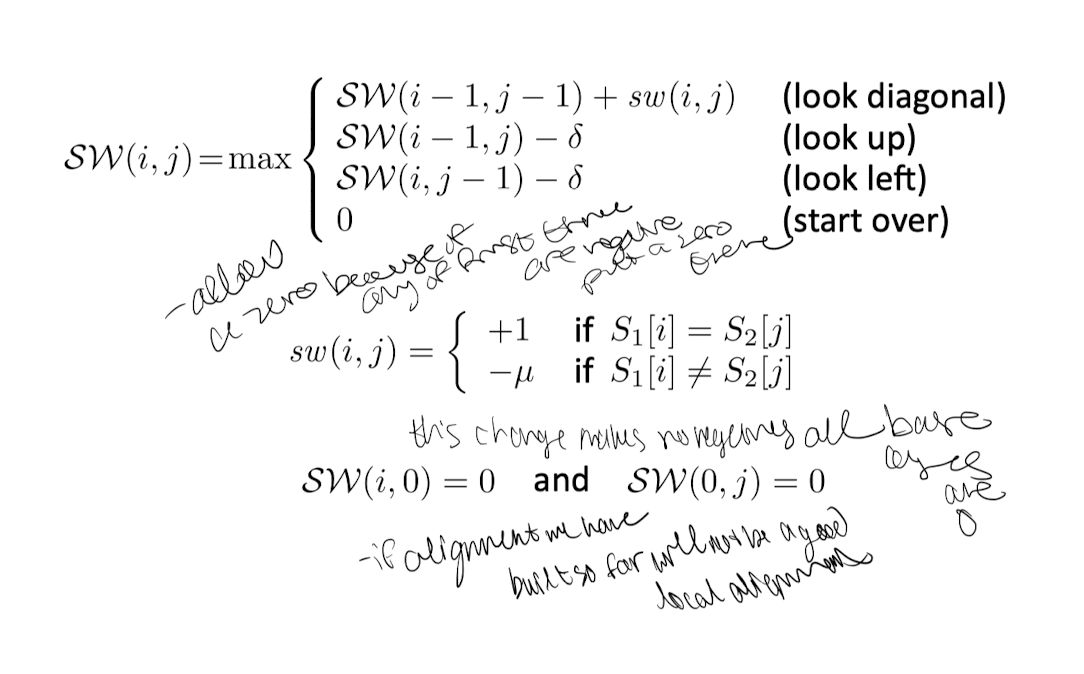 SW(i, j) = max { SW(i − 1, j − 1) + sw(i, j) (look diagonal)
SW(i − 1, j) − δ (look up)
SW(i, j − 1) − δ (look left)
0 (start over)
-allow
a zero because if
any of first three
are negative
put a zero
there
sw(i, j) = { +1 if S₁[i] = S₂[j]
−μ if S₁[i] ≠ S₂[j]
this change makes no negatives all base
cases
are
0
SW(i, 0) = 0 and SW(0, j) = 0
-if alignment we have
built so far will not be a good
local alignment